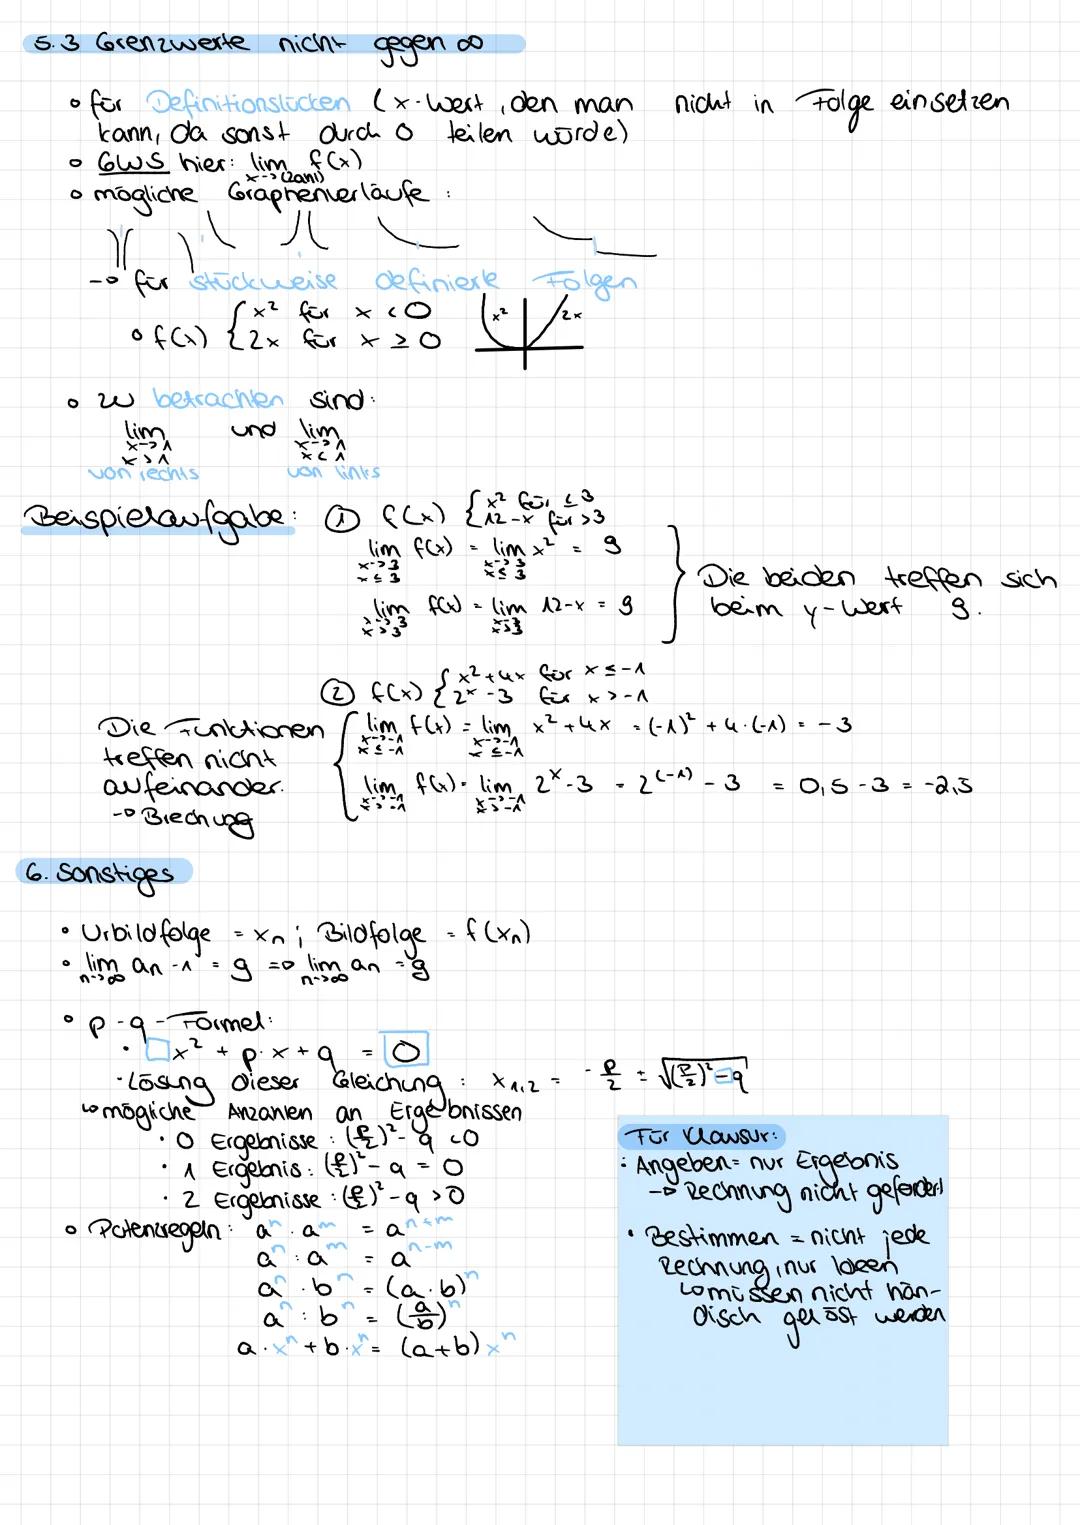 5.3 Grenzwerte nicht gegen ∞
• für Definitionslücken (x-Wert, den man nicht in Folge einsetzen
kann, da sonst durch 0 teilen würde)
• GWS hier: lim x->(Zahl) f(x)
• mögliche Graphenverläufe:
-> für stückweise definierte Folgen
• f(x) { x² für x < 0
2x für x ≥ 0
x² 2x
• zu betrachten sind:
lim x->1 x>1 und lim x->1 x<1
von rechts von links
Beispielaufgabe: ① f(x) { x² für ≤ 3
12-x für >3
lim x->3 x≤3 f(x) = lim x->3 x≤3 x² = 9
lim x->3 x>3 f(x) = lim x->3 x>3 12-x = 9
Die beiden treffen sich
beim y-Wert 9.
② f(x) { x²+4x für x ≤ -1
2^x -3 für x > -1
Die Funktionen
treffen nicht
aufeinander.
-> Brechung
lim x->-1 x≤-1 f(x) = lim x->-1 x≤-1 x² + 4x = (-1)² + 4·(-1) = -3
lim x->-1 x>-1 f(x) = lim x->-1 x>-1 2^x -3 = 2^(-1) - 3 = 0,5 - 3 = -2,5
6. Sonstiges
• Urbildfolge = xn ; Bildfolge = f(xn)
• lim n->∞ an -1 = g => lim n->∞ an = g
• p-q-Formel:
• □x² + p·x + q = 0
· Lösung dieser Gleichung: x1,2 = -p/2 ± √((p/2)²-q)
↳ mögliche Anzahlen an Ergebnissen
· 0 Ergebnisse: (p/2)² - q < 0
· 1 Ergebnis: (p/2)² - q = 0
· 2 Ergebnisse: (p/2)² - q > 0
• Potenzregeln: a^n · a^m = a^(n+m)
a^n : a^m = a^(n-m)
a^n · b^n = (a·b)^n
a^n : b^n = (a/b)^n
a·x^n + b·x^n = (a+b) x^n
Für Klausur:
• Angeben = nur Ergebnis
-> Rechnung nicht gefordert
• Bestimmen = nicht jede
Rechnung, nur Ideen
↳ müssen nicht hän-
disch gelöst werden